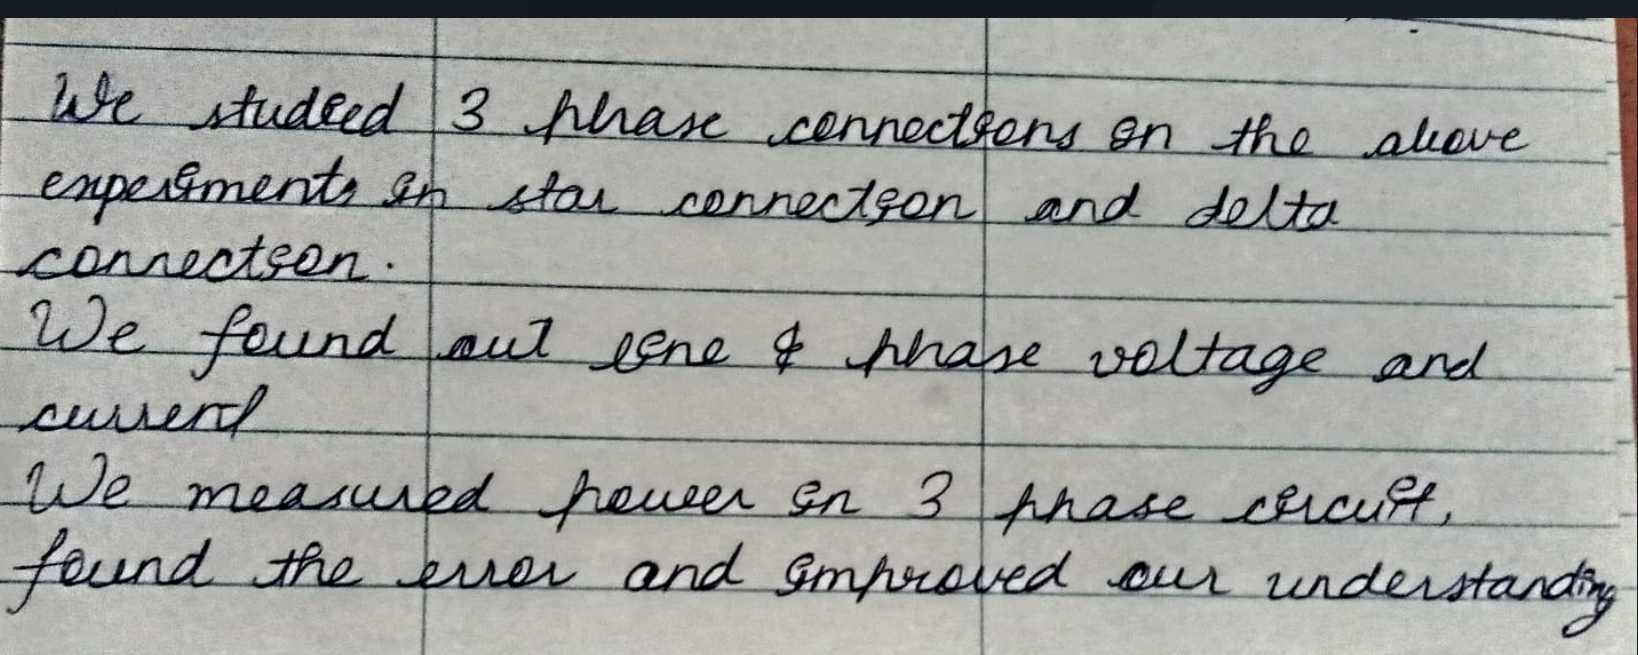 We studied 3 phase connections in the above
experiments in star connection and delta
connection.
We found out line & phase voltage and
current
We measured power in 3 phase circuit,
found the error and improved our understanding